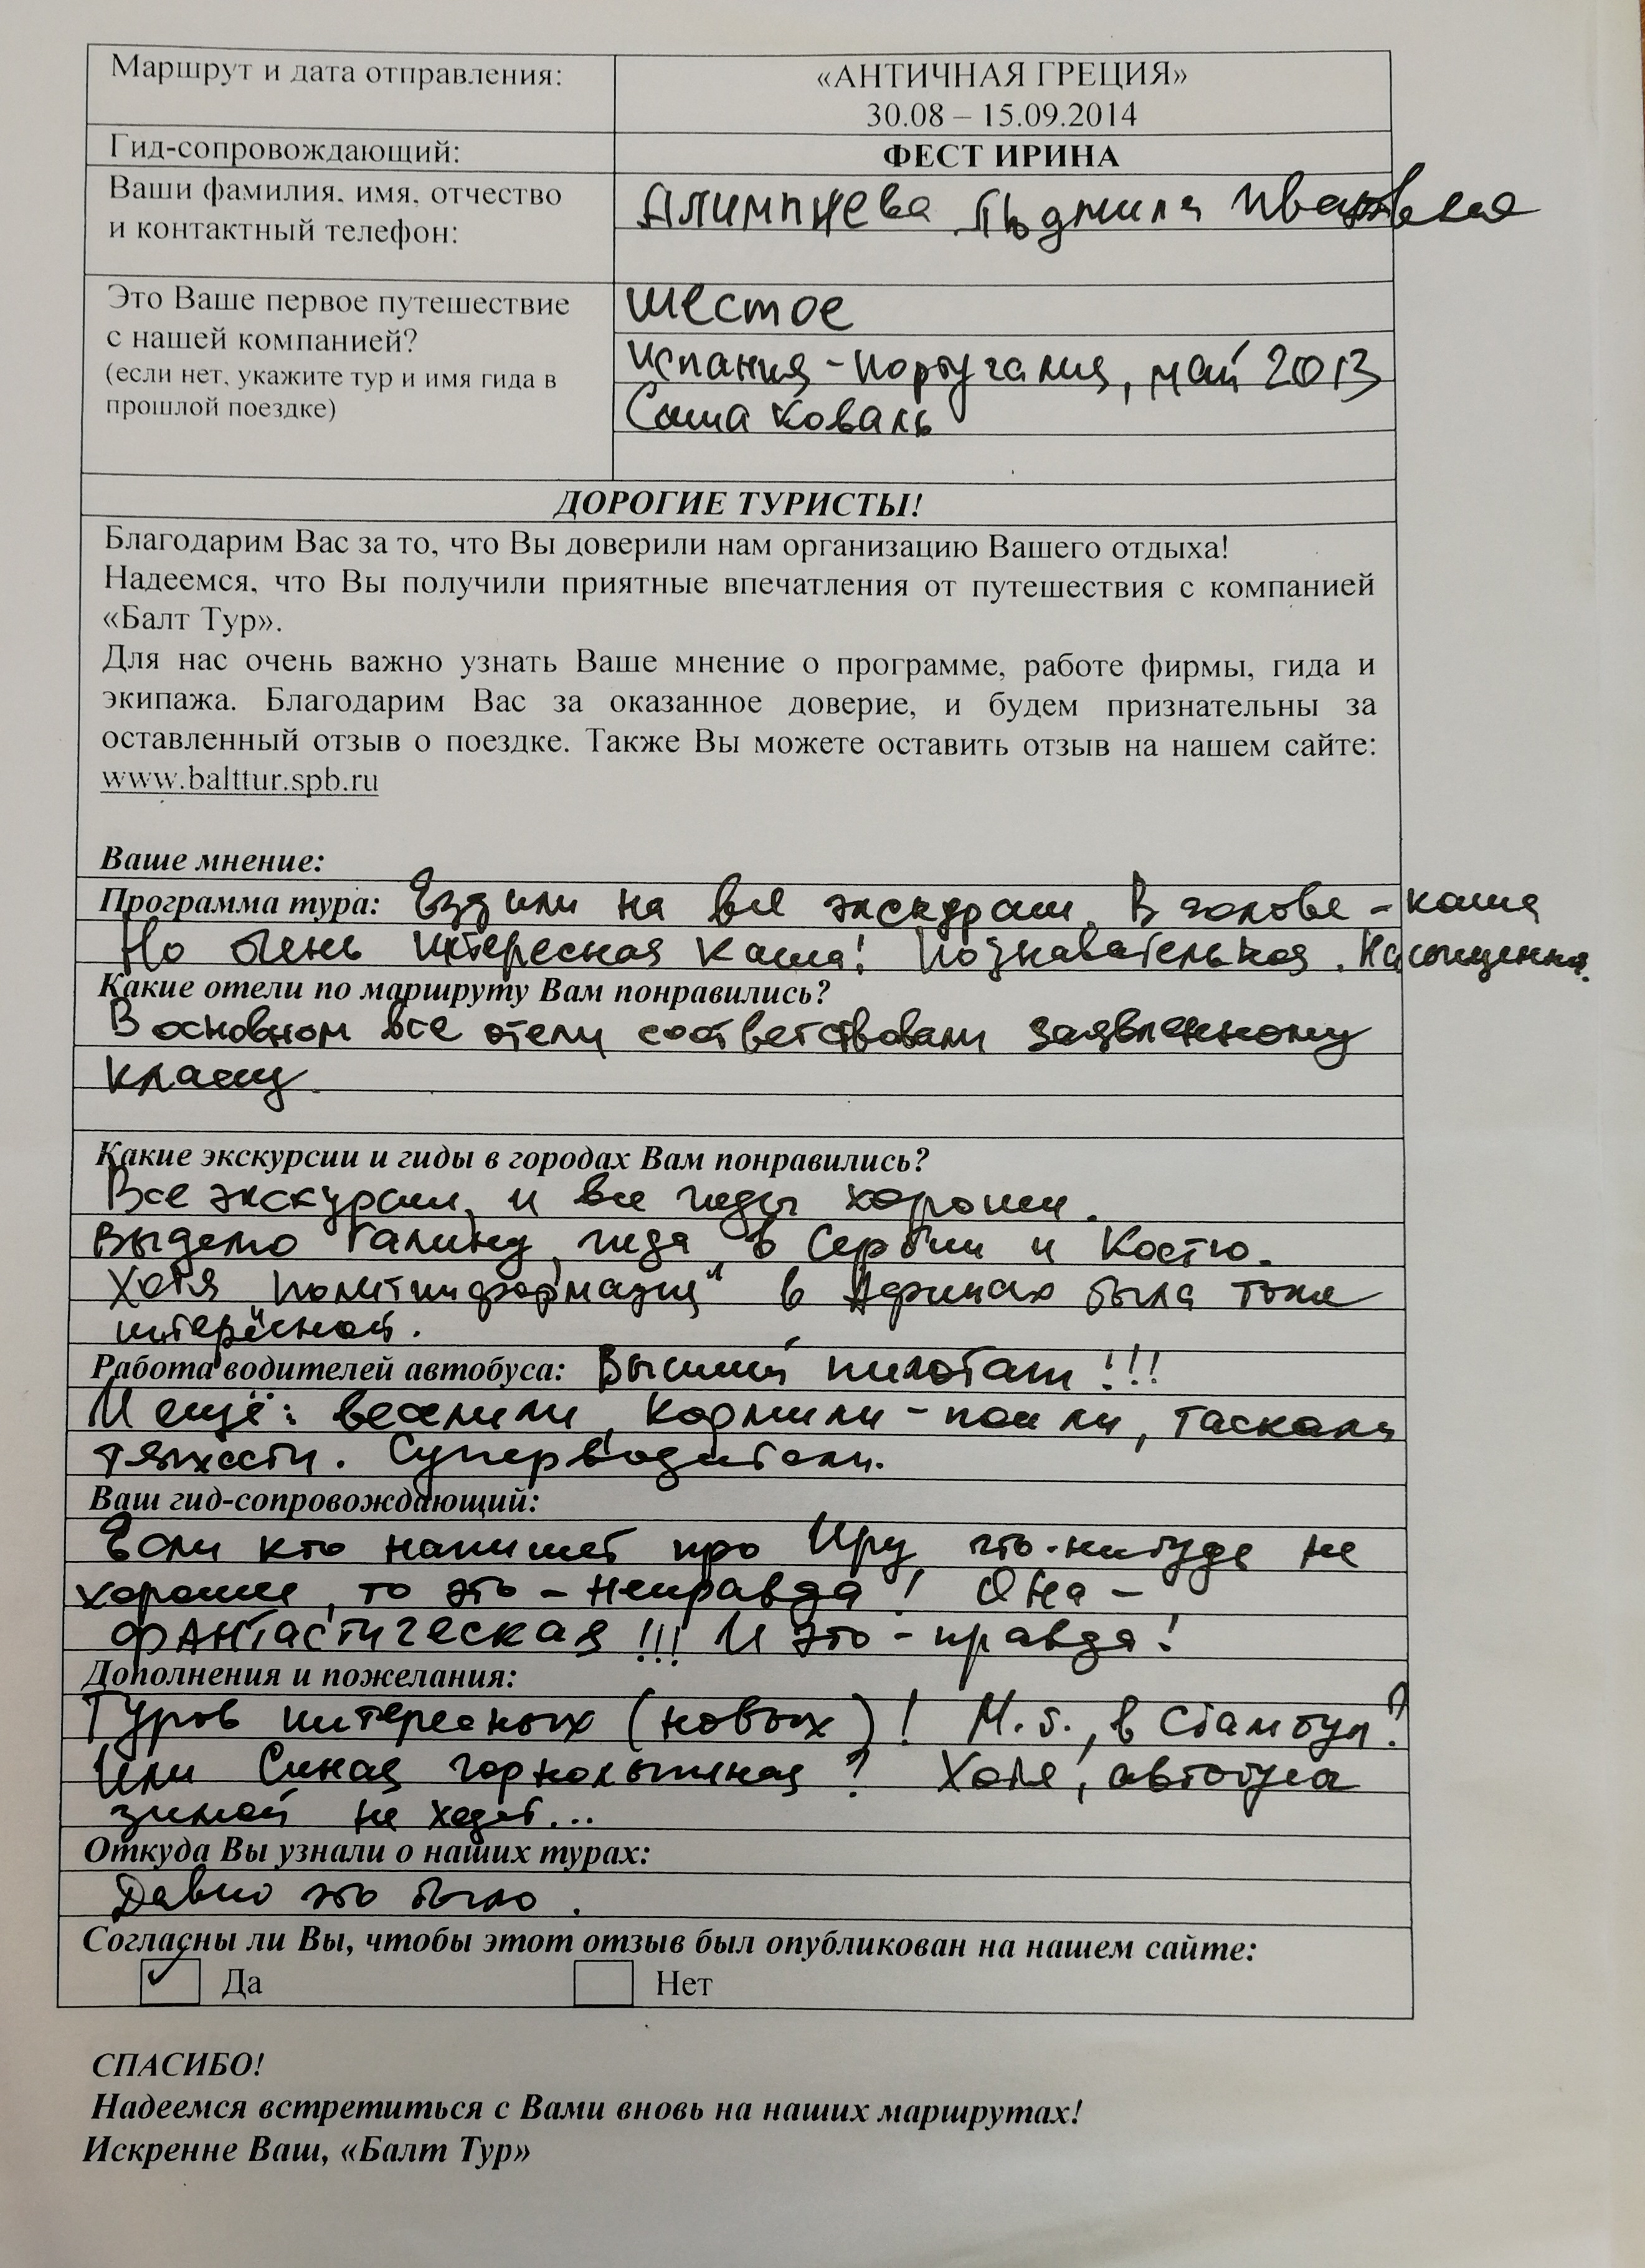 Маршрут и дата отправления:
«АНТИЧНАЯ ГРЕЦИЯ»
30.08 – 15.09.2014
Гид-сопровождающий:
ФЕСТ ИРИНА
Ваши фамилия, имя, отчество
и контактный телефон:
Алимпиева Людмила Ивановна
Это Ваше первое путешествие
с нашей компанией?
(если нет, укажите тур и имя гида в
прошлой поездке)
Шестое
Испания-Португалия, май 2013
Саша Коваль
ДОРОГИЕ ТУРИСТЫ!
Благодарим Вас за то, что Вы доверили нам организацию Вашего отдыха!
Надеемся, что Вы получили приятные впечатления от путешествия с компанией
«Балт Тур».
Для нас очень важно узнать Ваше мнение о программе, работе фирмы, гида и
экипажа. Благодарим Вас за оказанное доверие, и будем признательны за
оставленный отзыв о поездке. Также Вы можете оставить отзыв на нашем сайте:
www.balttur.spb.ru
Ваше мнение:
Программа тура: Ездили на все экскурсии. В голове - каша
Но очень интересная каша! Познавательная. Насыщенная.
Какие отели по маршруту Вам понравились?
В основном все отели соответствовали заявленному
классу.
Какие экскурсии и гиды в городах Вам понравились?
Все экскурсии, и все гиды хороши.
Выделю Галину, гида в Сербии и Костю.
Хотя "политинформация" в Афинах была тоже
интересной.
Работа водителей автобуса: Высший пилотаж!!!
И ещё: веселили, кормили-поили, таскали
тяжести. Суперводители.
Ваш гид-сопровождающий:
Если кто напишет про Иру что-нибудь не
хорошее, то это - неправда! Она -
фантастическая!!! И это - правда!
Дополнения и пожелания:
Туров интересных (новых)! М.б., в Стамбул?
Или Синая горнолыжная? Хотя, автобуса
зимой не ходят...
Откуда Вы узнали о наших турах:
Давно это было.
Согласны ли Вы, чтобы этот отзыв был опубликован на нашем сайте:
Да Нет
СПАСИБО!
Надеемся встретиться с Вами вновь на наших маршрутах!
Искренне Ваш, «Балт Тур»